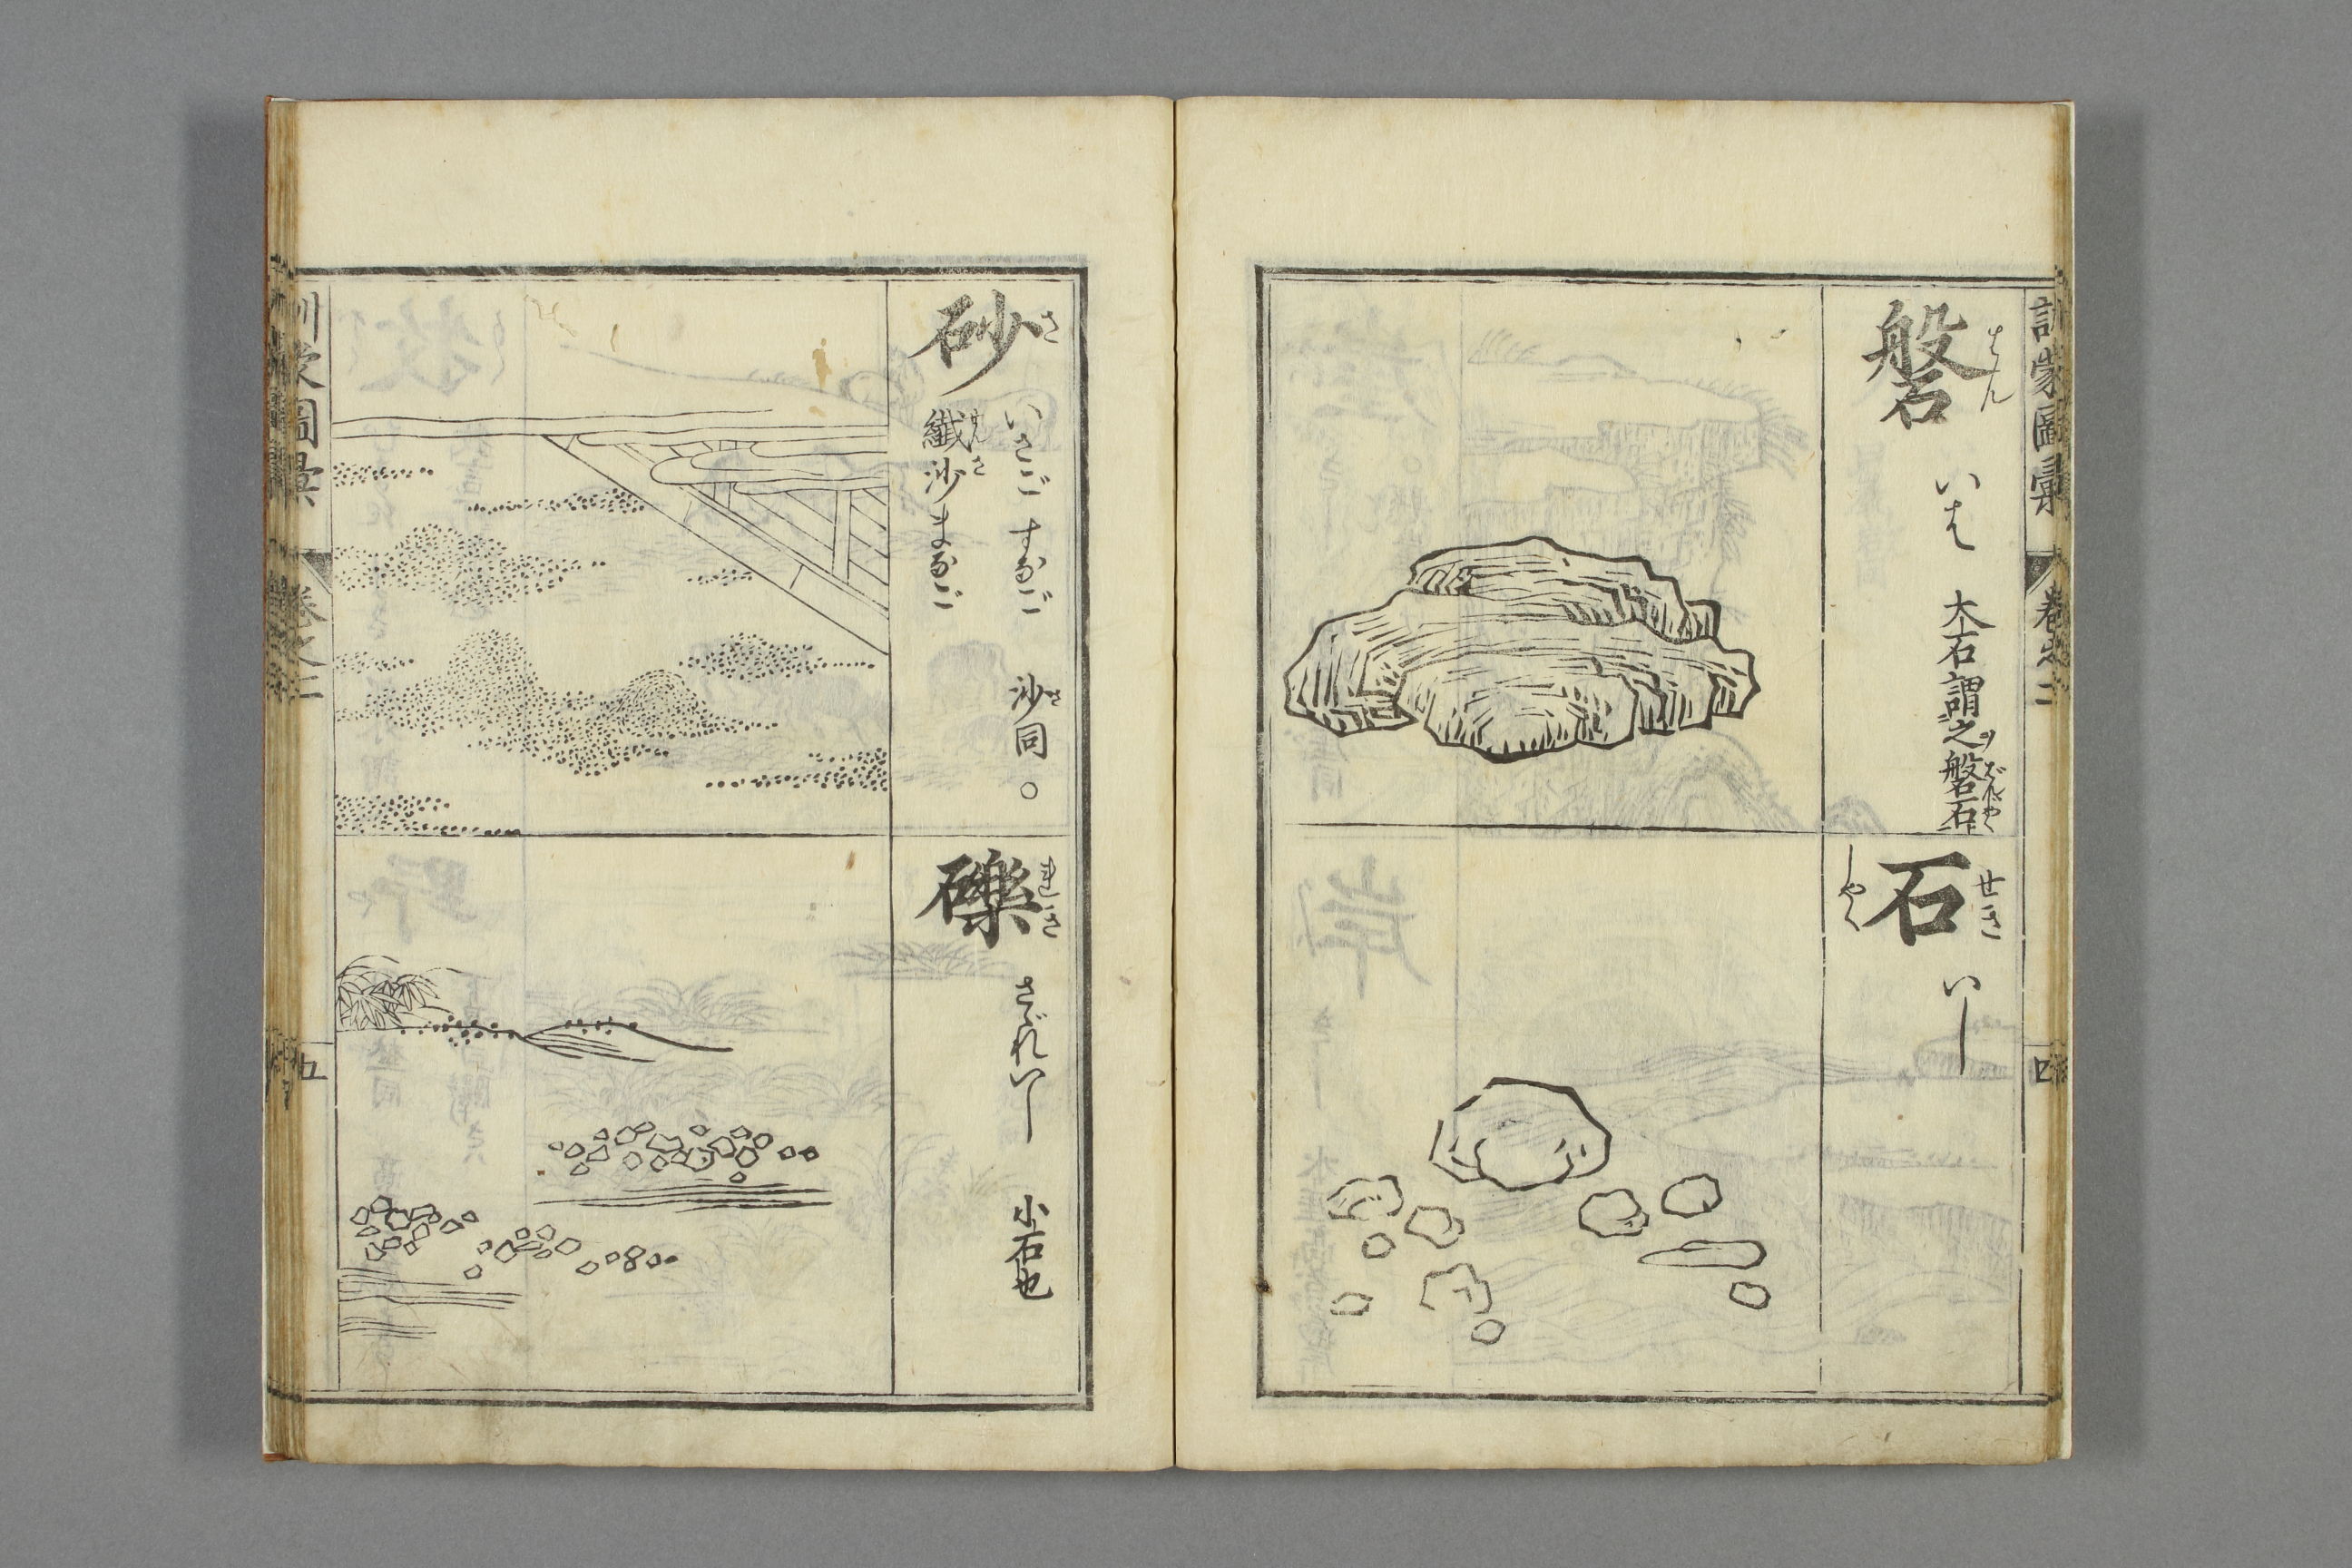 訓蒙圖彙 卷之二 四
磐 はん
いは 大石謂之磐石 ばんじやく
石 せき しやく
いし
砂 さ
いさご すなご 沙同。
纖沙 せんさ まなご
礫 れき
さゞれいし 小石也
訓蒙圖彙 卷之二 五